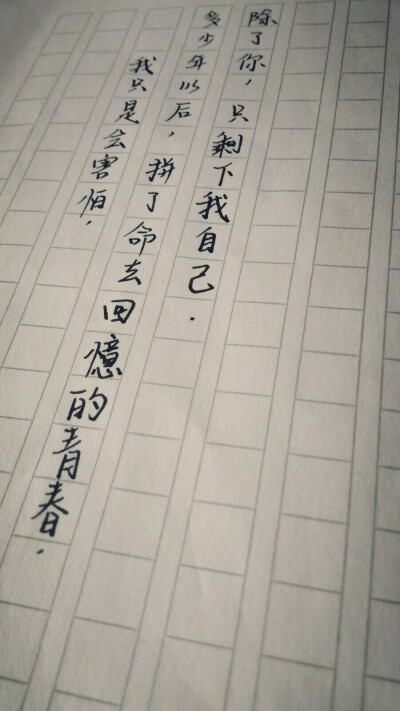 我只是会害怕，
多少年以后，拼了命去回憶的青春.
除了你，只剩下我自己.